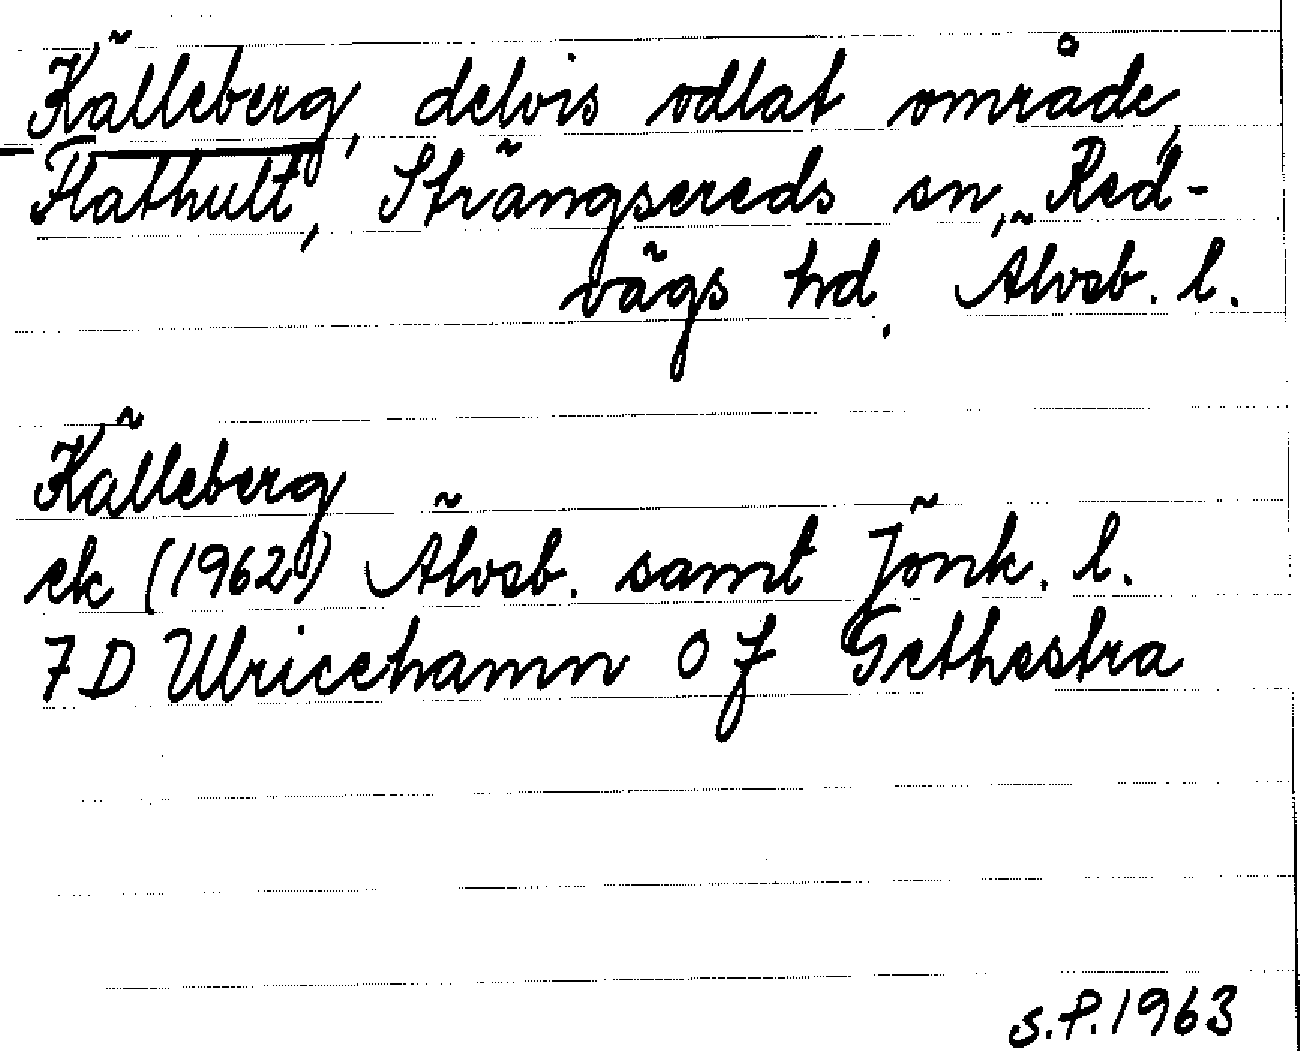 Källeberg, delvis odlat område,
Flathult, Strängsereds sn, Red-
vägs hd, Älvsb. l.
Källeberg
ek (1962) Älvsb. samt Jönk. l.
7D Ulricehamn 0f Grethestra
S.P. 1963